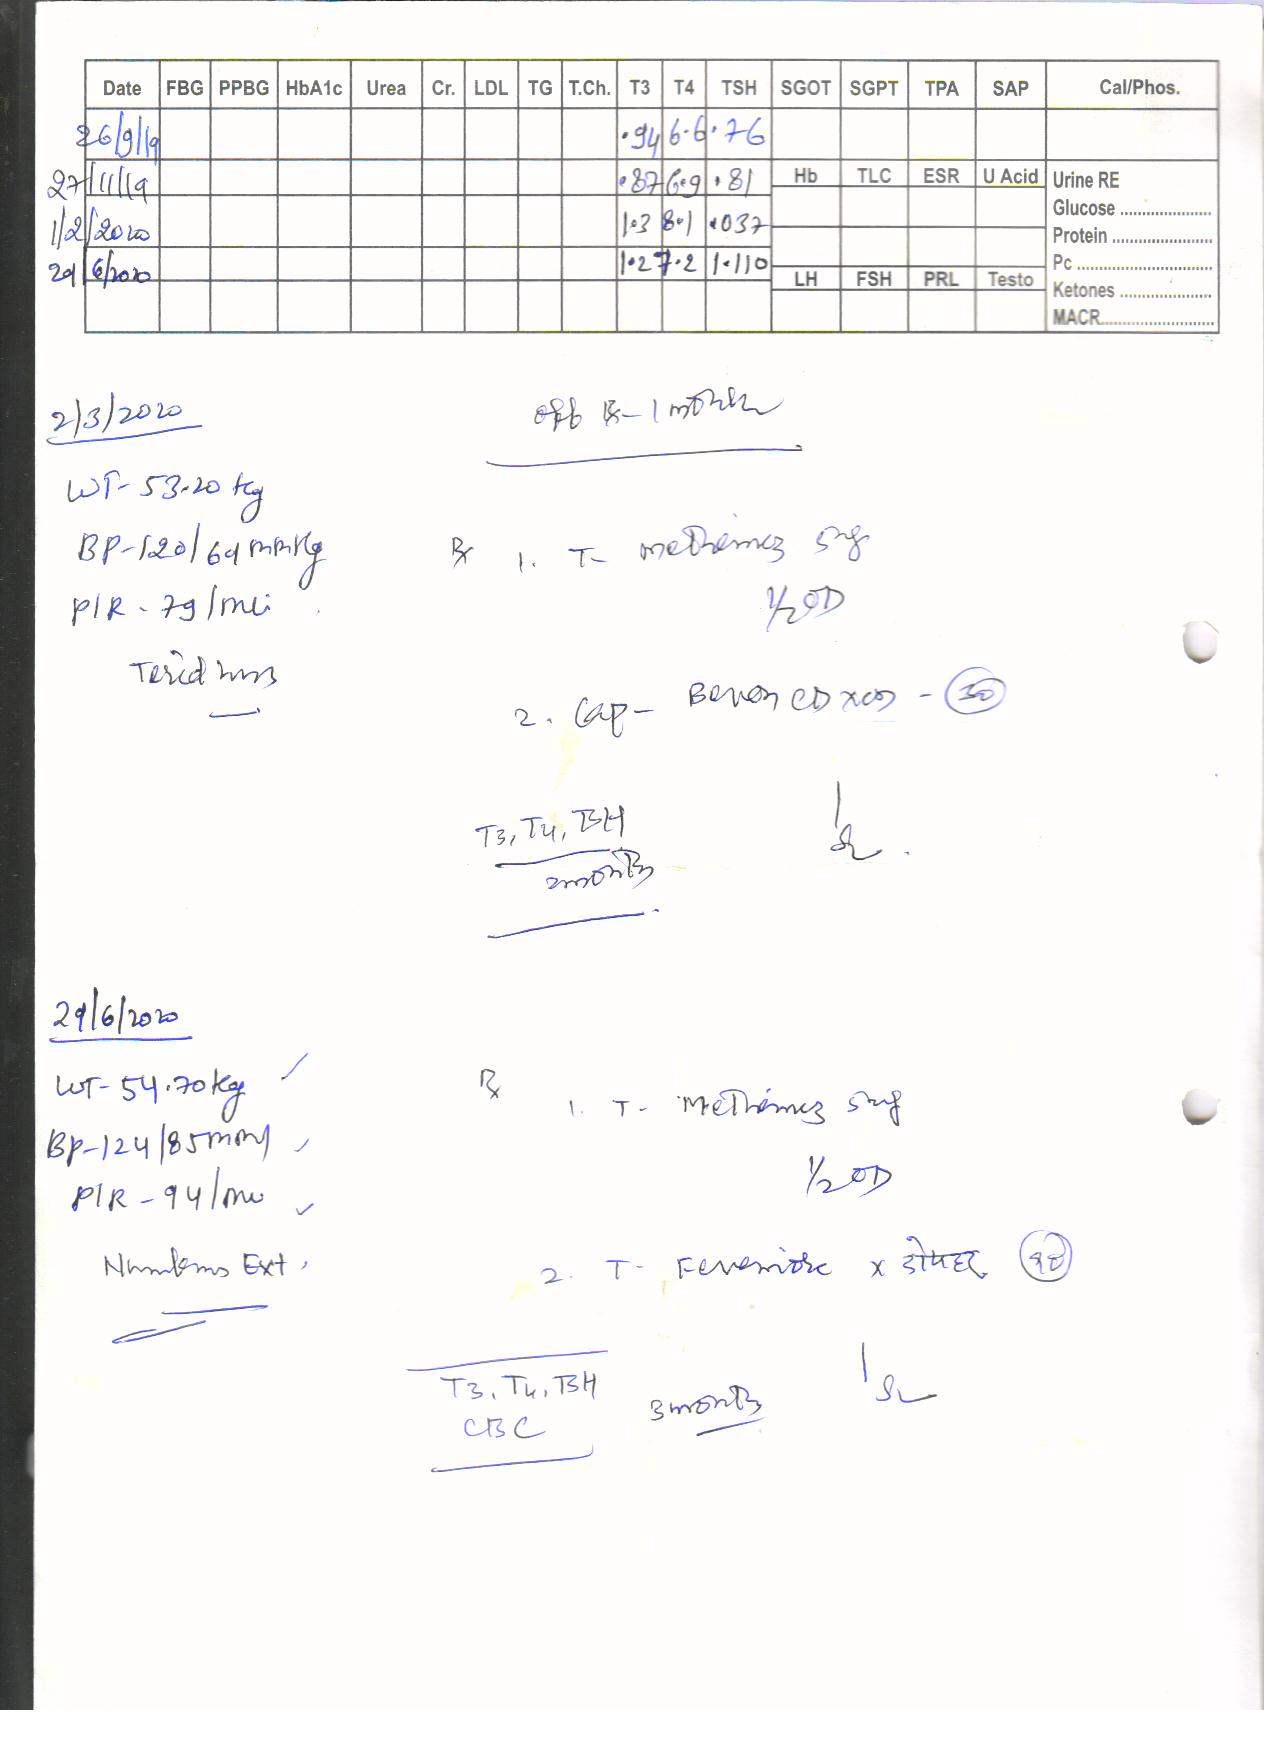 Date FBG PPBG HbA1c Urea Cr. LDL TG T.Ch. T3 T4 TSH SGOT SGPT TPA SAP Cal/Phos.
26/9/19 .94 6.6 .76
27/11/19 .87 6.9 .81 Hb TLC ESR U Acid Urine RE
Glucose ....................
1/2/2020 1.3 8.1 .037 Protein ......................
29/6/2020 1.2 7.2 1.110 Pc .............................
LH FSH PRL Testo Ketones ....................
MACR.........................
2/3/2020 off Rx - 1 month
WT- 53.20 kg
BP-120/69 mmHg Rx 1. T- Methimez 5mg
P/R - 79/mi 1/2 OD
2. Cap- CD - 30
T3, T4, TSH
2 months
29/6/2020
WT- 54.70 kg Rx 1. T- Methimez 5mg
BP-124/85 mmHg
P/R - 94/mi 1/2 OD
Numbness Ext. 2. T- x
T3, T4, TSH
CBC 3 months